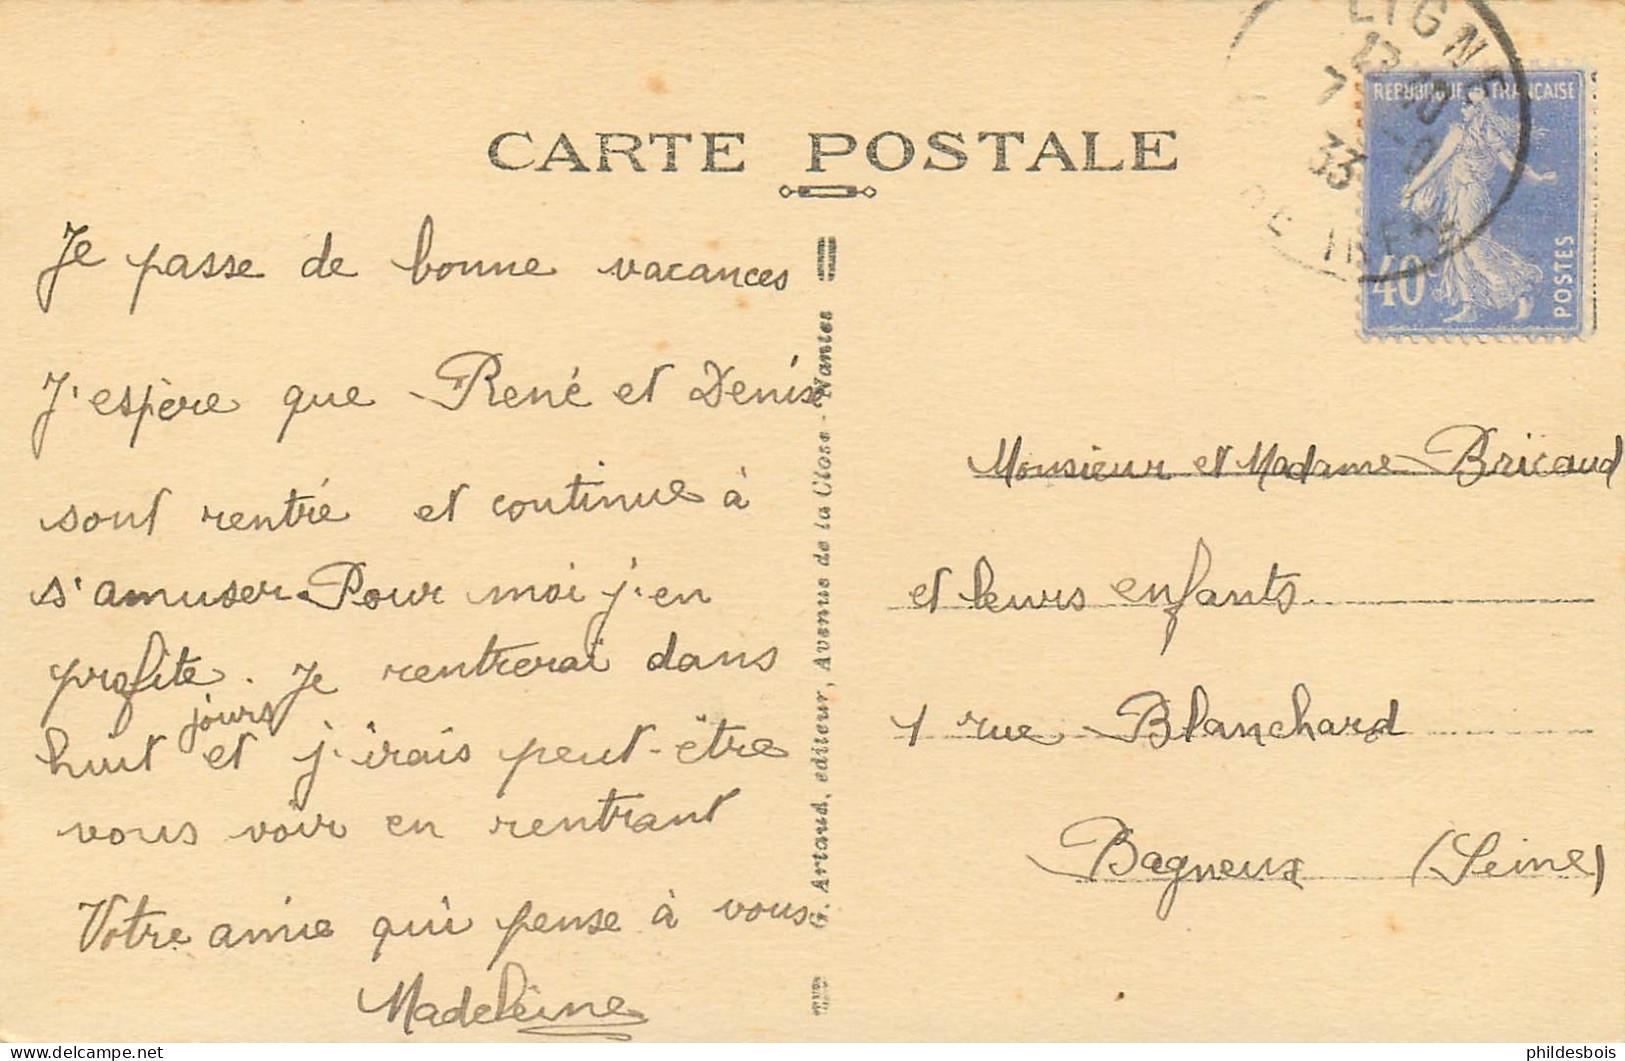 CARTE POSTALE
Je passe de bonne vacances
J'espère que René et Denise
sont rentré et continue à
s'amuser. Pour moi j'en
profite. Je rentrerai dans
jours
huit et j'irais peut-être
vous voir en rentrant
Votre amie qui pense à vous
Madeleine
G. Artaud, editeur, Avenue de la Close - Nantes
LIGNÉ
33
RE INF
REPUBLIQUE FRANÇAISE
40c
POSTES
Monsieur et Madame Bricaud
et leurs enfants
1 rue Blanchard
Bagneux (Seine)
phildesbois